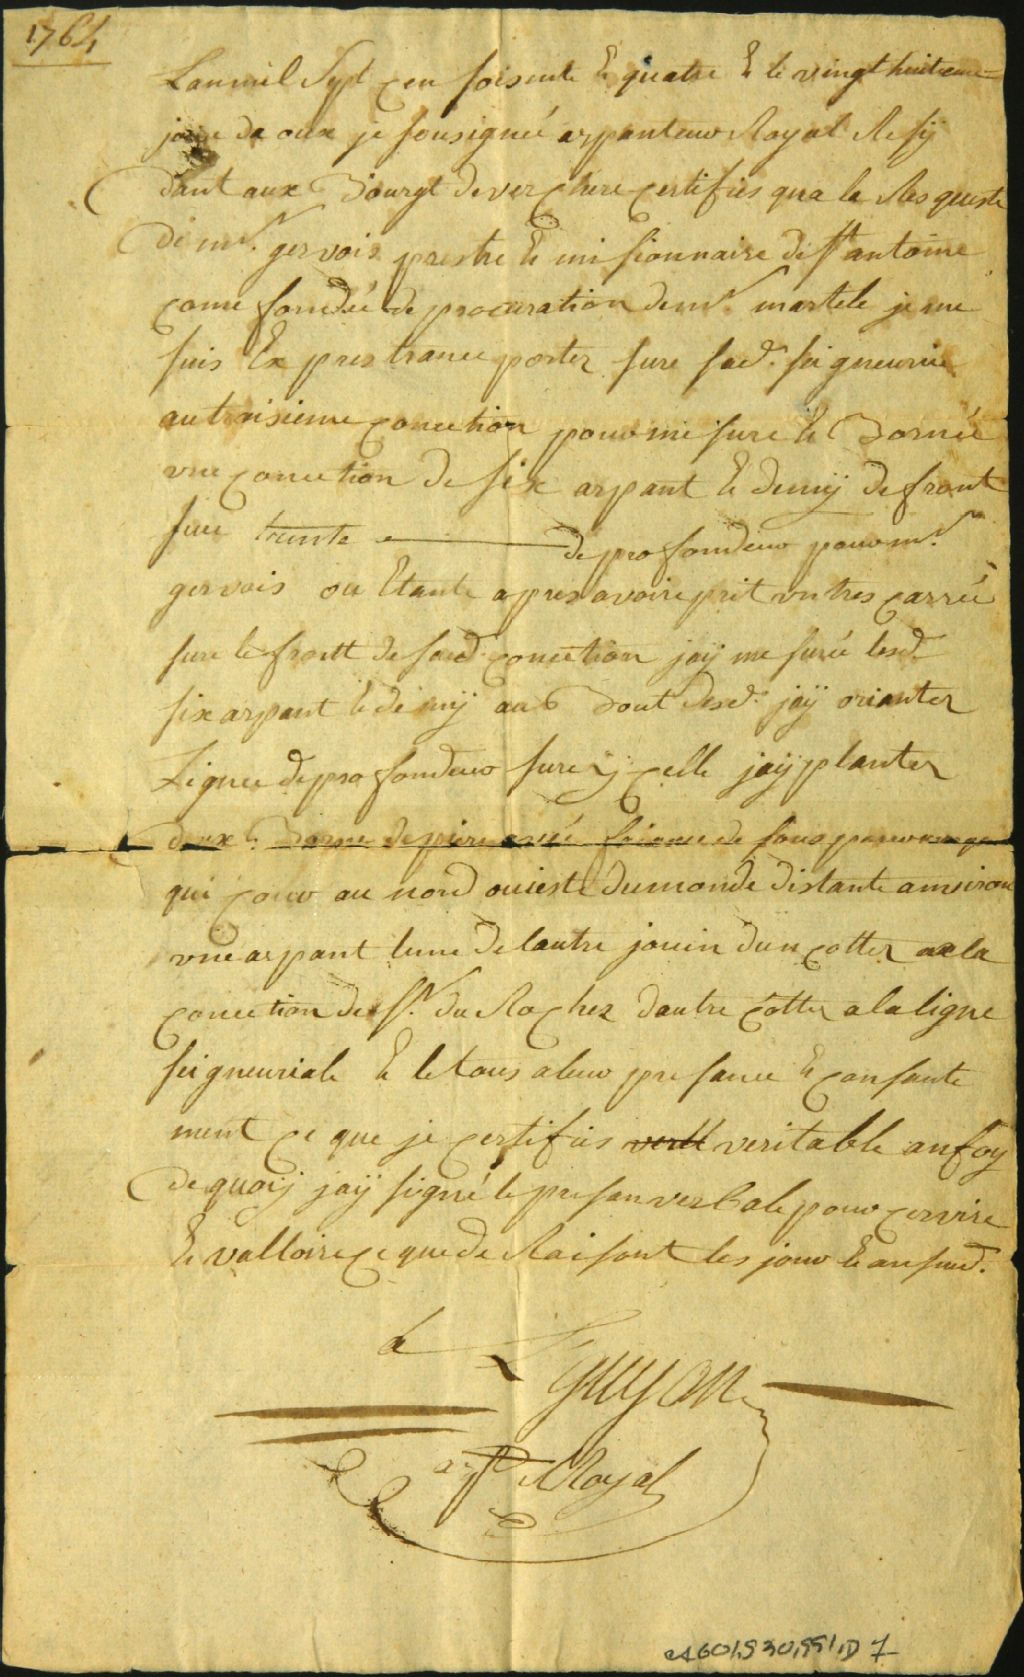 1764
Lanmil Sept cen soisente & quatre & le vingt huitieme
jour da oux je sousigneé arpanteur Royal Resÿ
dant aux Bourgt de verchere certifies qua la Resqueste
de mr. gervois prestre & missionnaire de st antoine
come fondeé de procuration de mr. martele je me
suis Ex pres tranceporter sure sad. seigneurie
au troisieme concetion pour mesure & Borneé
une concetion de six arpant & demÿ de front
sure trente de profondeur pour mr.
gervois ou Etante apres avoire prit un tres carreé
sure le frontt de sad. concetion jaÿ mesureé lesd.
six arpant & demÿ au Bout desd. jaÿ orianter
Lignee de profondeur sure ÿcelle jaÿ planter
deux Borne de piere de sous
qui cour au nord ouieste du monde distante anviron
une arpant lune de lautre jouin dun cotter a la
concetion de sr. du Rocher dautre cotter a la ligne
seigneuriale & le tous a leur presance & consante
ment ce que je certifies veritable anfoy
de quoiÿ jaÿ signé le presan verbale pour cervire
& valloire ce que de Raisont les jour & an sud.
a L Guyon
arp. Royal
A601,S30,SS1,D 1